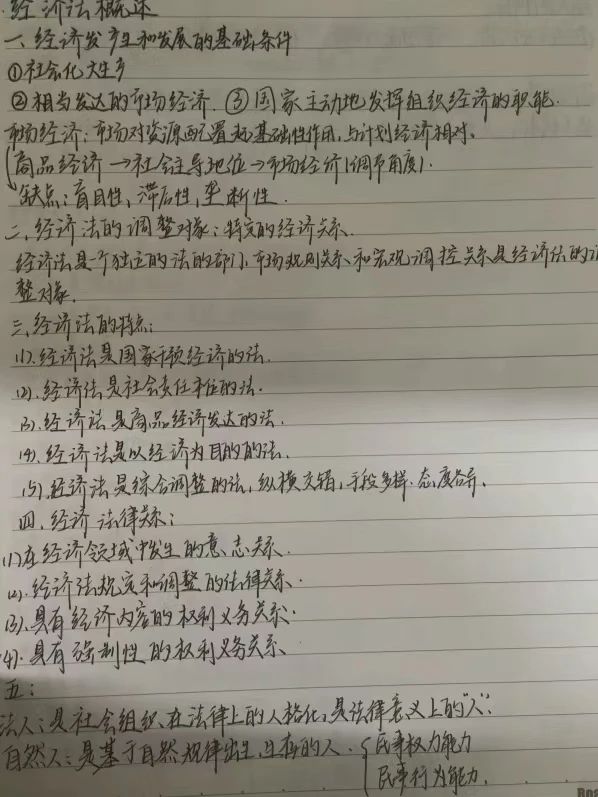 经济法概述
一、经济发产生和发展的基础条件
①社会化大生产
②相当发达的市场经济.③国家主动地发挥组织经济的职能.
市场经济:市场对资源配置起基础性作用,与计划经济相对.
商品经济→社会主导地位→市场经济(调节角度).
缺点:盲目性、滞后性,垄断性.
二、经济法的调整对象:特定的经济关系.
经济法是一个独立的法的部门,市场规则关系和宏观调控关系是经济法的调
整对象.
三、经济法的特点:
(1).经济法是国家干预经济的法.
(2).经济法是社会责任本位的法.
(3).经济法是商品经济发达的法.
(4).经济法是以经济为目的的法.
(5).经济法是综合调整的法,纵横交错,手段多样.态度各异.
四、经济法律关系:
(1)在经济领域中发生的意志关系.
(2).经济法规定和调整的法律关系.
(3).具有经济内容的权利义务关系.
(4).具有强制性的权利义务关系
五:
法人:是社会组织在法律上的人格化,是法律意义上的"人".
自然人:是基于自然规律出生,生存的人.{民事权力能力
民事行为能力.